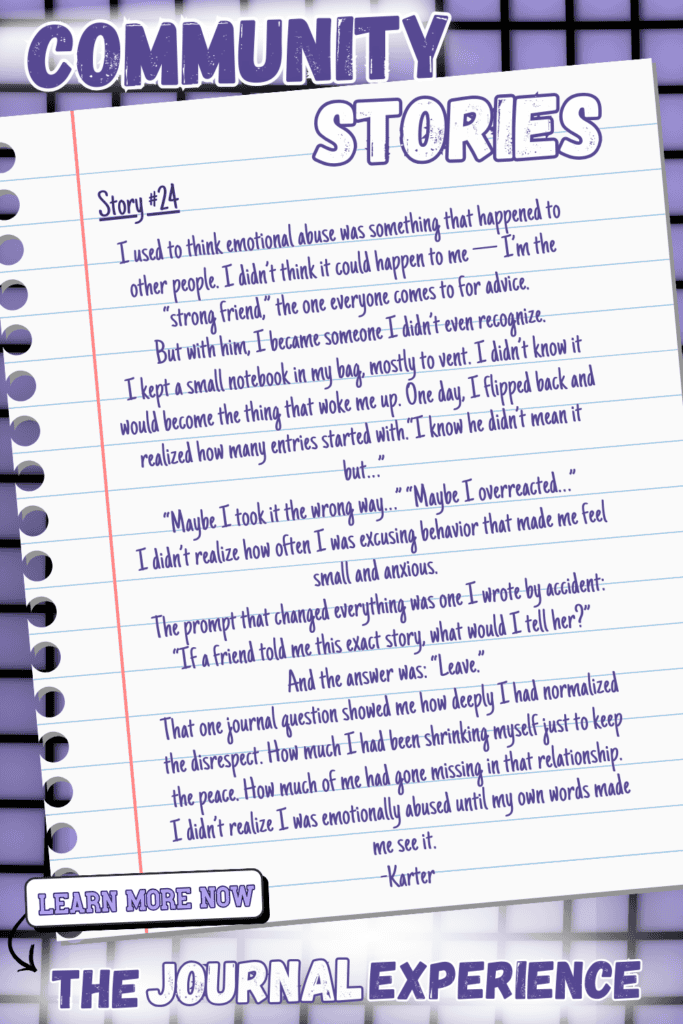 COMMUNITY
STORIES
Story #24
I used to think emotional abuse was something that happened to
other people. I didn't think it could happen to me — I'm the
"strong friend," the one everyone comes to for advice.
But with him, I became someone I didn't even recognize.
I kept a small notebook in my bag, mostly to vent. I didn't know it
would become the thing that woke me up. One day, I flipped back and
realized how many entries started with:"I know he didn't mean it
but..."
"Maybe I took it the wrong way..." "Maybe I overreacted..."
I didn't realize how often I was excusing behavior that made me feel
small and anxious.
The prompt that changed everything was one I wrote by accident:
"If a friend told me this exact story, what would I tell her?"
And the answer was: "Leave."
That one journal question showed me how deeply I had normalized
the disrespect. How much I had been shrinking myself just to keep
the peace. How much of me had gone missing in that relationship.
I didn't realize I was emotionally abused until my own words made
me see it.
-Karter
LEARN MORE NOW
THE JOURNAL EXPERIENCE